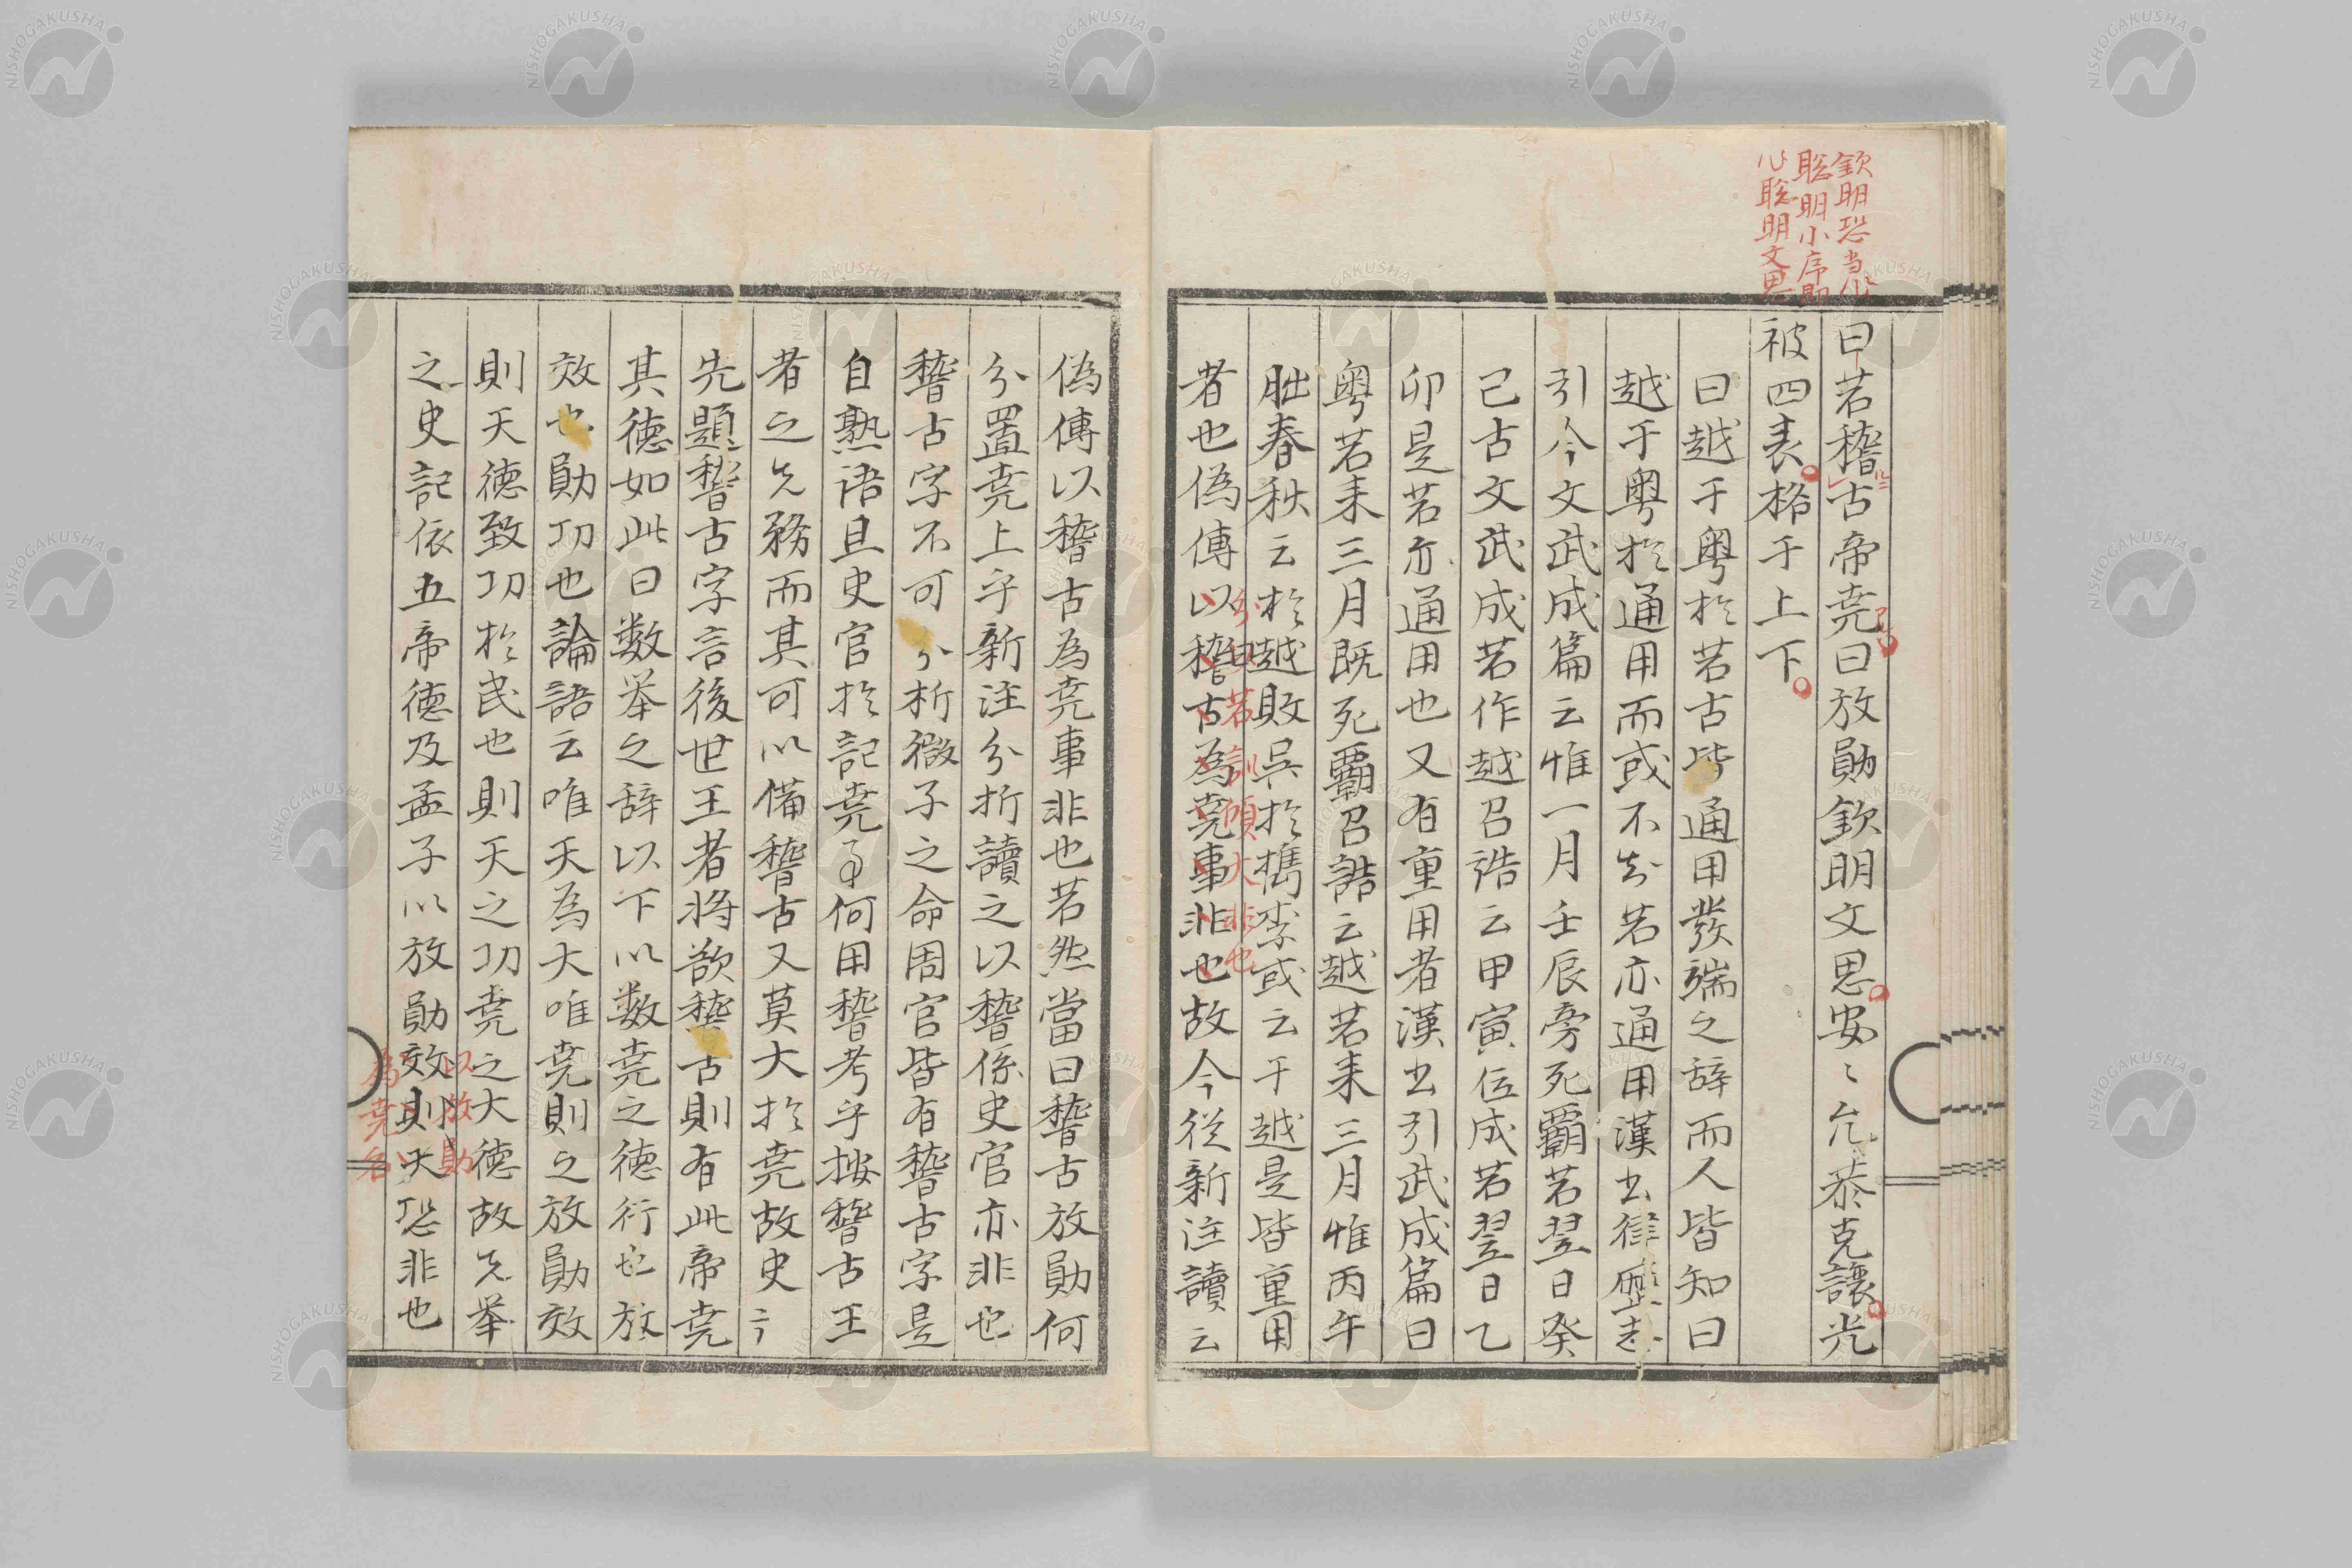 欽明恐当作
聡明小序即
聡明文思
曰若稽古帝堯曰放勛欽明文思安〻允恭克讓光
被四表格于上下
曰越于粤於若古皆通用發端之辞而人皆知曰
越于粤於通用而或不知若亦通用漢書律歴志
引今文武成篇云惟一月壬辰旁死覇若翌日癸
己古文武成若作越召誥云甲寅位成若翌日乙
卯是若亦通用也又有重用者漢書引武成篇曰
粤若来三月既死覇召誥云越若来三月惟丙午
朏春秋云於越敗呉於檇李或云于越是皆重用
分曰若訓順大非也
者也偽傳以稽古為堯事非也故今従新注讀云
偽傳以稽古為堯事非也若然當曰稽古放勛何
分置堯上乎新注分折讀之以稽係史官亦非也
稽古字不可分析微子之命周官皆有稽古字是
自熟語且史官於記堯事何用稽考乎按稽古王
者之先務而其可以備稽古又莫大於堯故史官
先題稽古字言後世王者將欲稽古則有此帝堯
其徳如此曰数挙之辞以下以数堯之徳行也放
效也勛功也論語云唯天為大唯堯則之放勛效
則天徳致功於民也則天之功堯之大徳故先挙
以放勛
之史記依五帝徳及孟子以放勛效則天恐非也
為堯名